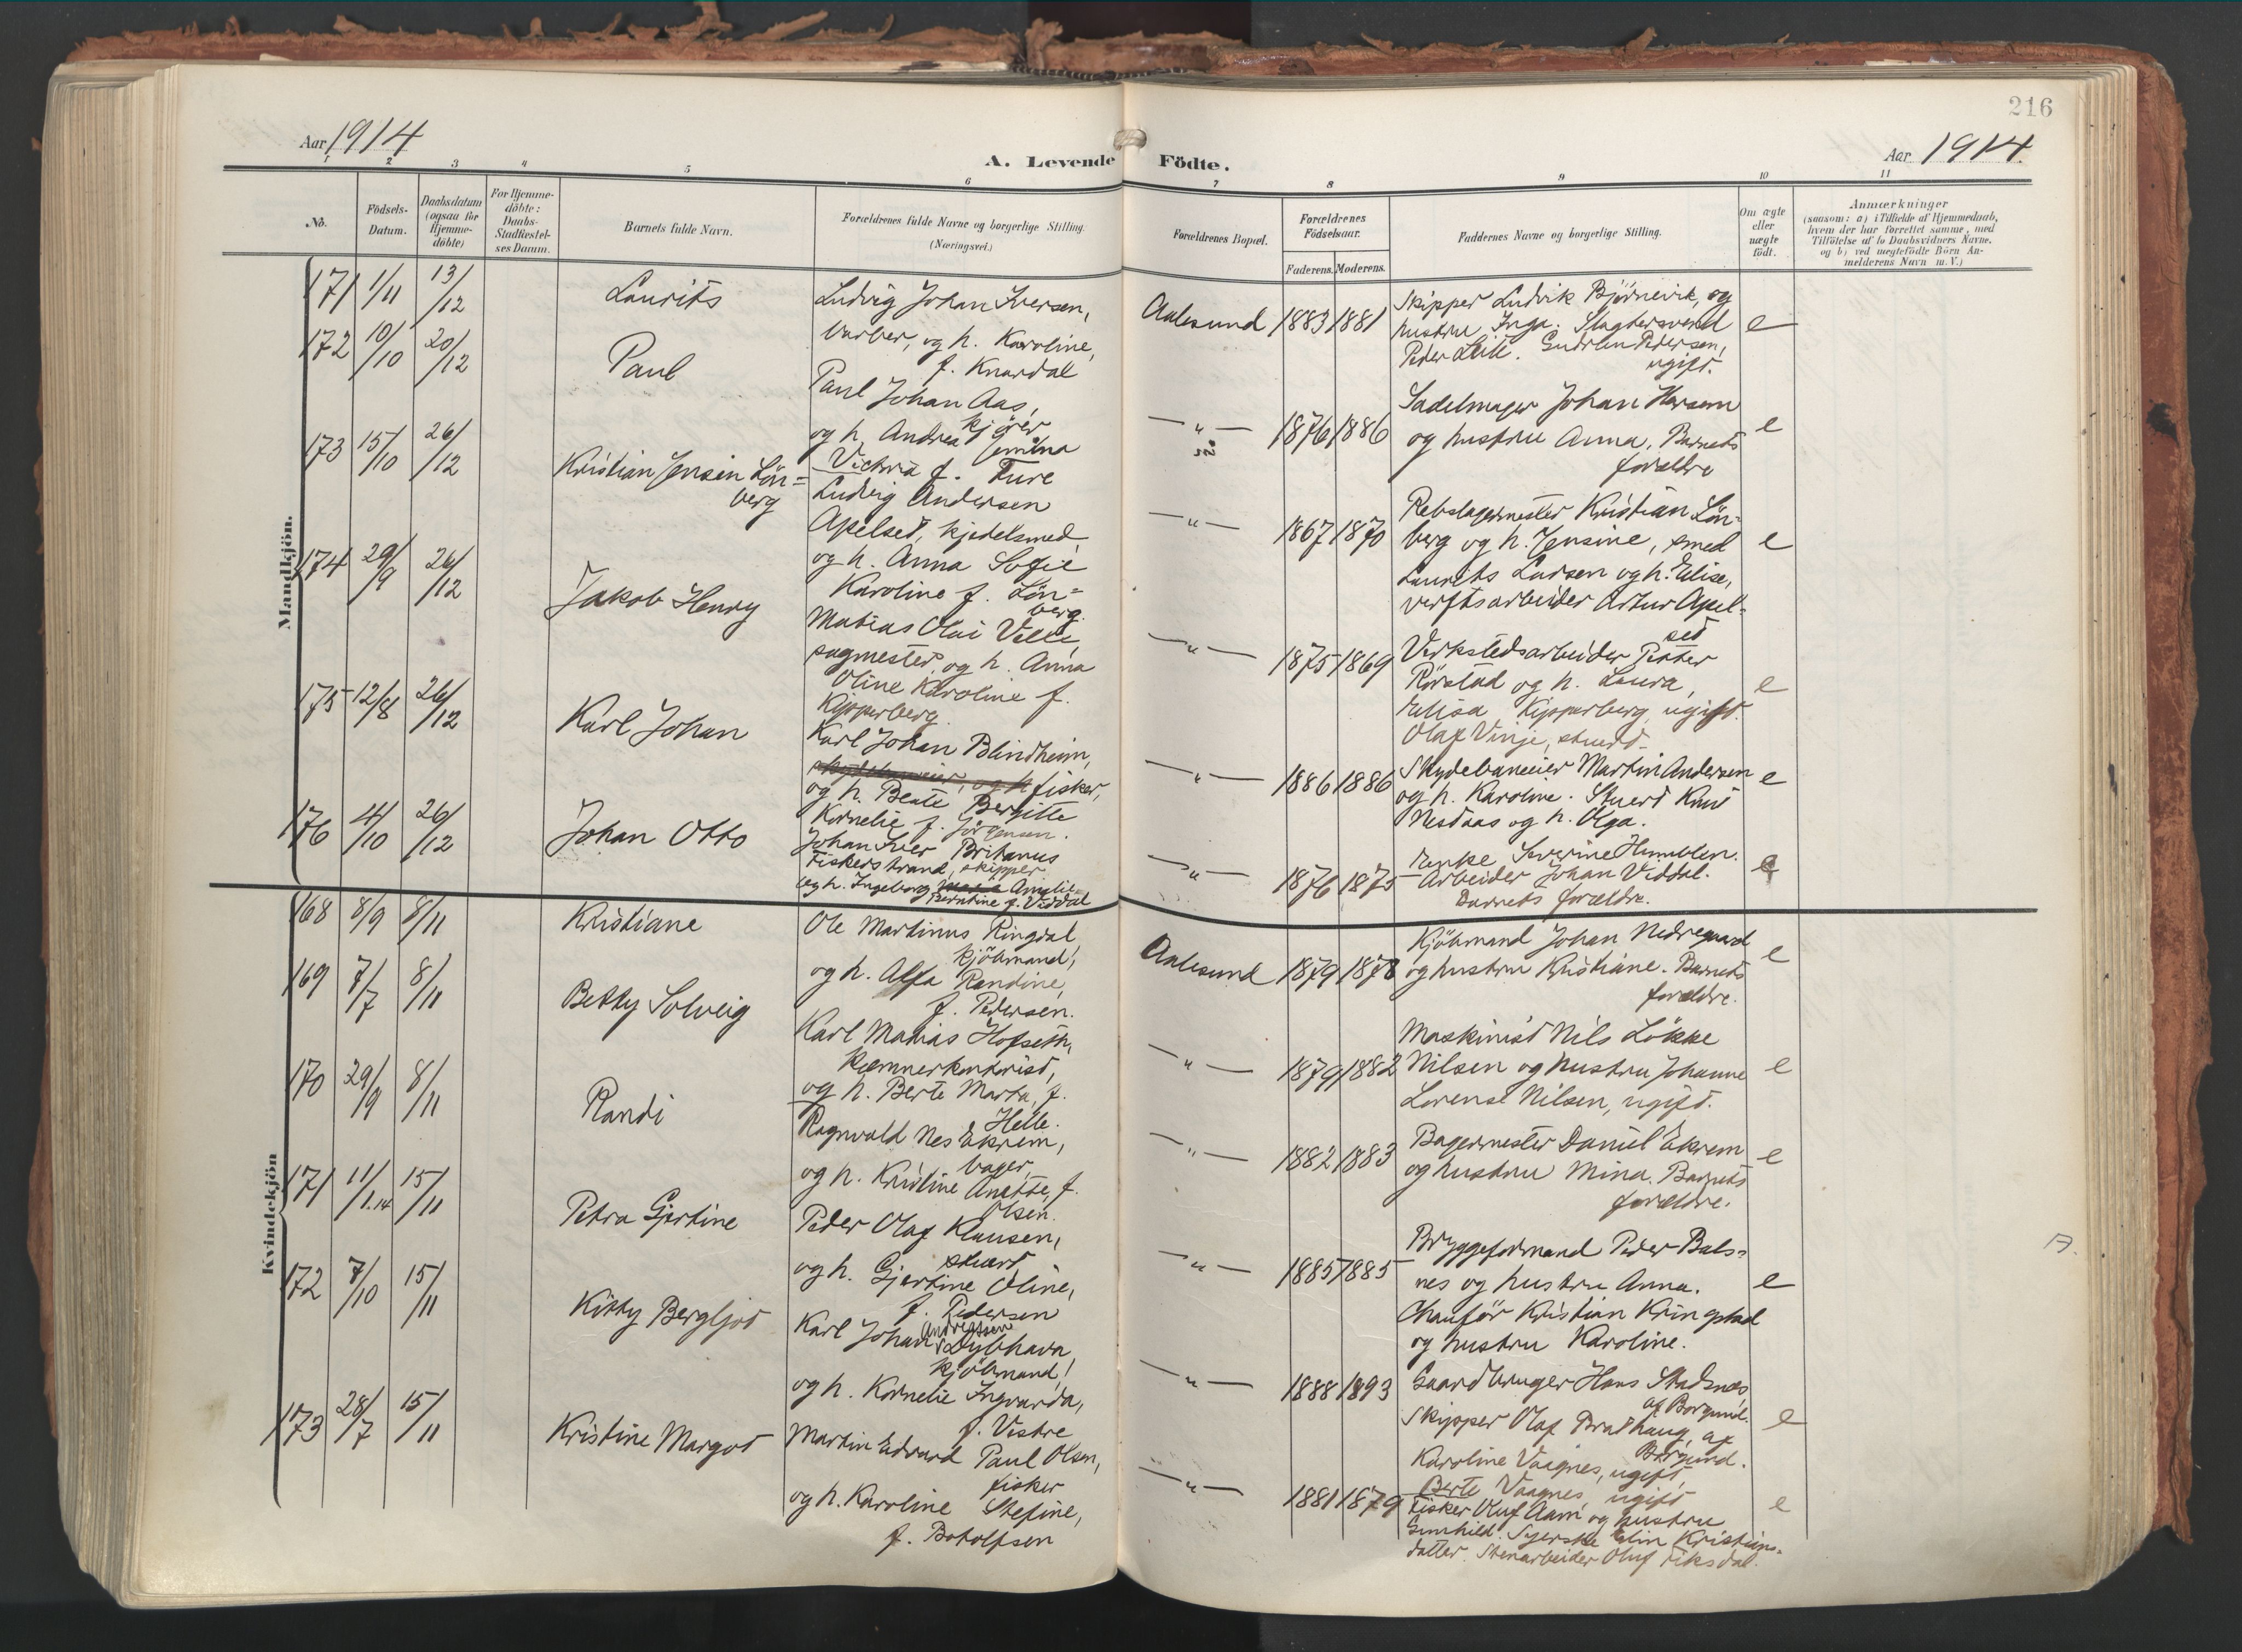 216
Aar 1914
A. Levende Födte.
Aar 1914
1 2 3 4 5 6 7 8 9 10 11
No.
Födsels-Datum.
Daabsdatum (ogsaa for Hjemme-döbte)
For Hjemme-döbte: Daabs-Stadfæstel-ses Datum.
Barnets fulde Navn.
Forældrenes fulde Navne og borgerlige Stilling.
(Næringsvei.)
Forældrenes Bopæl.
Forældrenes Födselsaar.
Faderens. Moderens.
Faddernes Navne og borgerlige Stilling.
Om ægte eller uægte födt.
Anmærkninger
(saasom: a) i Tilfælde af Hjemmedaab,
hvem der har forrettet samme, med
Tilföielse af to Daabsvidners Navne.
og b) ved uægtefödte Börn An-
melderens Navn m.V.)
Mandkjön.
171 1/11 13/12
Laurits
Ludvig Johan Iversen,
barber, og h. Karoline,
f. Knardal
Aalesund 1883 1881
Skipper Ludvik Björnevik, og
hustru Inga. Slagtersvend
Peder Leite. Gudrun Pedersen,
ugift.
e
172 10/10 20/12
Paul
Paul Johan Aas,
kjörer
og h. Andrea Jemina
Victoria f. Ture
—"— 1876 1886
Sadelmager Johan Hansen
og hustru Anna. Barnets
forældre
e
173 15/10 26/12
Kristian Jensen Lön=
berg
Ludvig Andersen
Apelset, kjedelsmed
og h. Anna Sofie
Karoline f. Lön=
berg.
—"— 1867 1870
Rebslagermester Kristian Lön=
berg og h. Jensine, smed
Laurits Larsen og h. Elise,
verftsarbeider Artur Apel-
set
e
174 29/9 26/12
Jakob Henry
Matias Olai Velle,
sagmester og h. Anna
Oline Karoline f.
Kipperberg.
—"— 1875 1869
Verkstedsarbeider Petter
Rörstad og h. Laura,
Elisa Kipperberg, ugift.
Olaf Vinje, stuert.
e
175 12/8 26/12
Karl Johan
Karl Johan Blindheim,
fisker,
og h. Beate Bergitte
Kornelie f. Jörgensen.
—"— 1886 1886
Skydebaneeier Martin Andersen
og h. Karoline. Stuert Knut
Nesdaas og h. Olga.
e
176 4/10 26/12
Johan Otto
Johan Iver Britanus
Fiskerstrand, skipper
og h. Ingeborg Amalie
Berntine f. Viddal
—"— 1876 1875
enke Severine Humblen.
Arbeider Johan Viddal.
Barnets forældre.
e
Kvindekjön
168 8/9 8/11
Kristiane
Ole Martinus Ringdal,
kjöbmand,
og h. Alfa Randine,
f. Pedersen.
Aalesund 1879 1878
Kjöbmand Johan Nedregaard
og hustru Kristiane. Barnets
forældre.
e
169 7/7 8/11
Betty Solveig
Karl Matias Hofseth,
Kæmnerkontorist,
og h. Berte Marta, f.
Helle.
—"— 1879 1882
Maskinist Nils Lökke
Nilsen og hustru Johanne
Lorense Nilsen, ugift.
e
170 29/9 8/11
Randi
Ragnvald Nes Ekrem,
bager,
og h. Kristine Anette, f.
Olsen.
—"— 1882 1883
Bagermester Daniel Ekrem
og hustru Mina. Barnets
forældre.
e
171 11/1.14 15/11
Petra Gjertine
Peder Olaf Klausen,
stuert,
og h. Gjertine Oline,
f. Pedersen
—"— 1885 1885
Bryggeformand Peder Bals=
nes og hustru Anna.
Chauför Kristian Kringstad
og hustru Karoline.
e
172 7/10 15/11
Kitty Bergljot
Karl Johan Andreassen Dybhavn
kjöbmand,
og h. Kornelie Ingvarda,
f. Vestre
—"— 1888 1893
Gaardbruger Hans Stadsnes,
af Borgund.
Skipper Olaf Brathaug, af
Borgund.
Karoline Vaagnes, ugift
Berte Vaagnes, ugift
e
173 28/7 15/11
Kristine Margot
Martin Edvard Paul Olsen,
fisker
og h. Karoline Stefine,
f. Botolfsen
—"— 1881 1879
Fisker Oluf Aam og hustru
Gunhild. Syerske Elin Kristians-
datter. Stenarbeider Oluf Fiksdal.
e